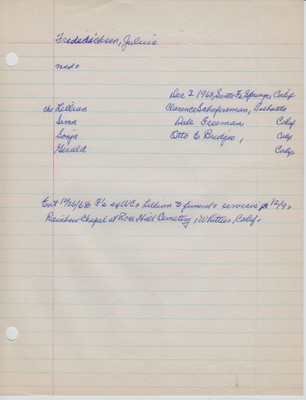 Fredrickson, Julius
Dec 2, 1968, Santa Fe Springs, Calif
ch: Lillian Clarence Schepsman,
Irma Dale Freeman Calif
Sonja Otto E Bridges, Calif
Gerald Calif
Ent 12/26/68 F/c of WC & Lillian funeral services 12/9
Rainbow Chapel at Rose Hill Cemetery, Whittier, Calif.